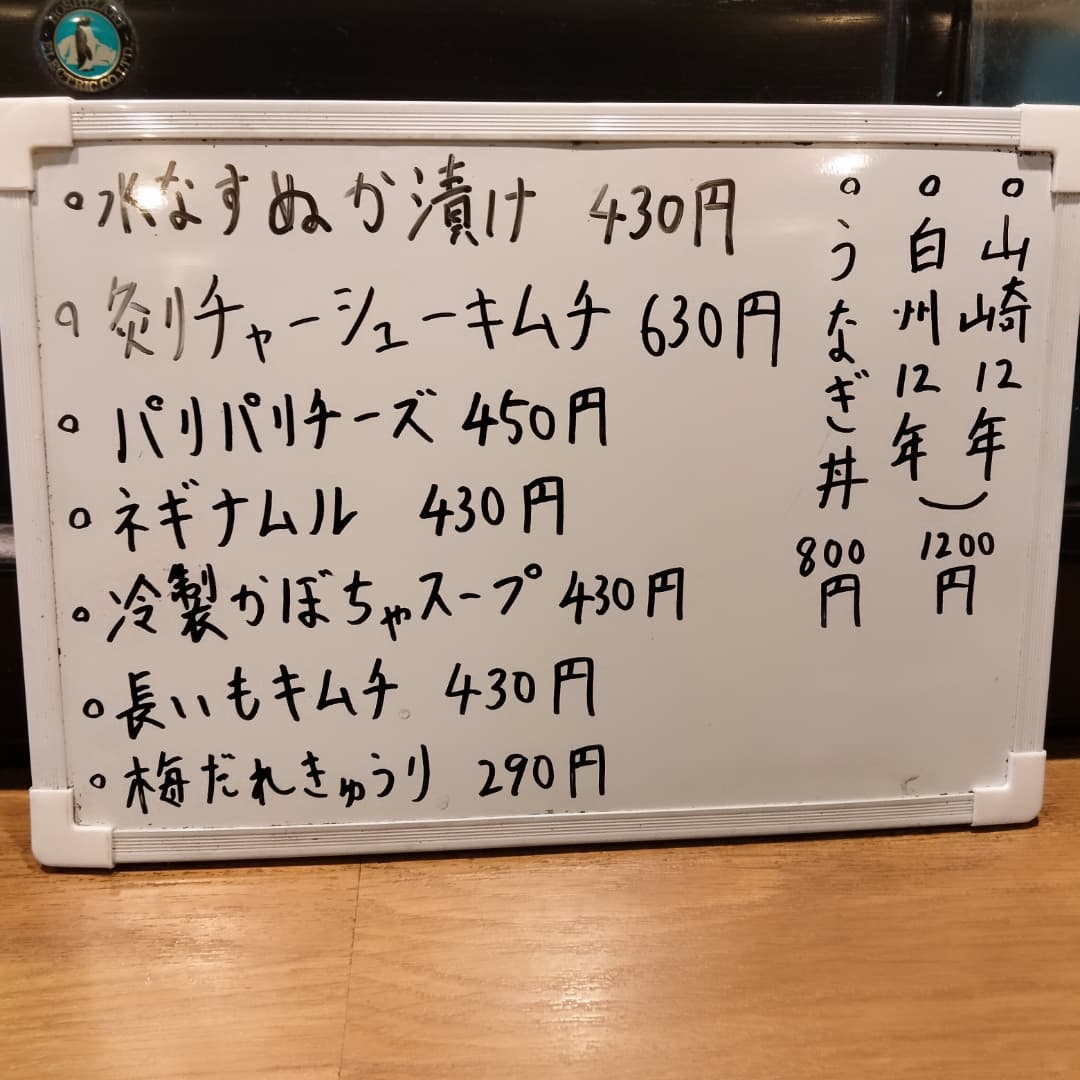 HOSHIZAKI ELECTRIC CO., LTD.
○水なすぬか漬け 430円
○炙りチャーシューキムチ 630円
○パリパリチーズ 450円
○ネギナムル 430円
○冷製かぼちゃスープ 430円
○長いもキムチ 430円
○梅だれきゅうり 290円
○山崎12年
○白州12年
1200円
○うなぎ丼 800円